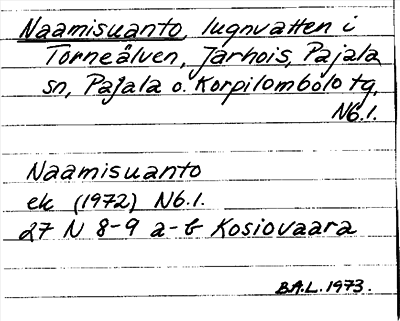 Naamisuanto, lugnvatten i
Torneälven, Jarhois, Pajala
sn, Pajala o. Korpilombolo tg,
Nb.l.
Naamisuanto
ek (1972) Nb.l.
27 N 8-9 a-b Kosiovaara
B.A.L. 1973.